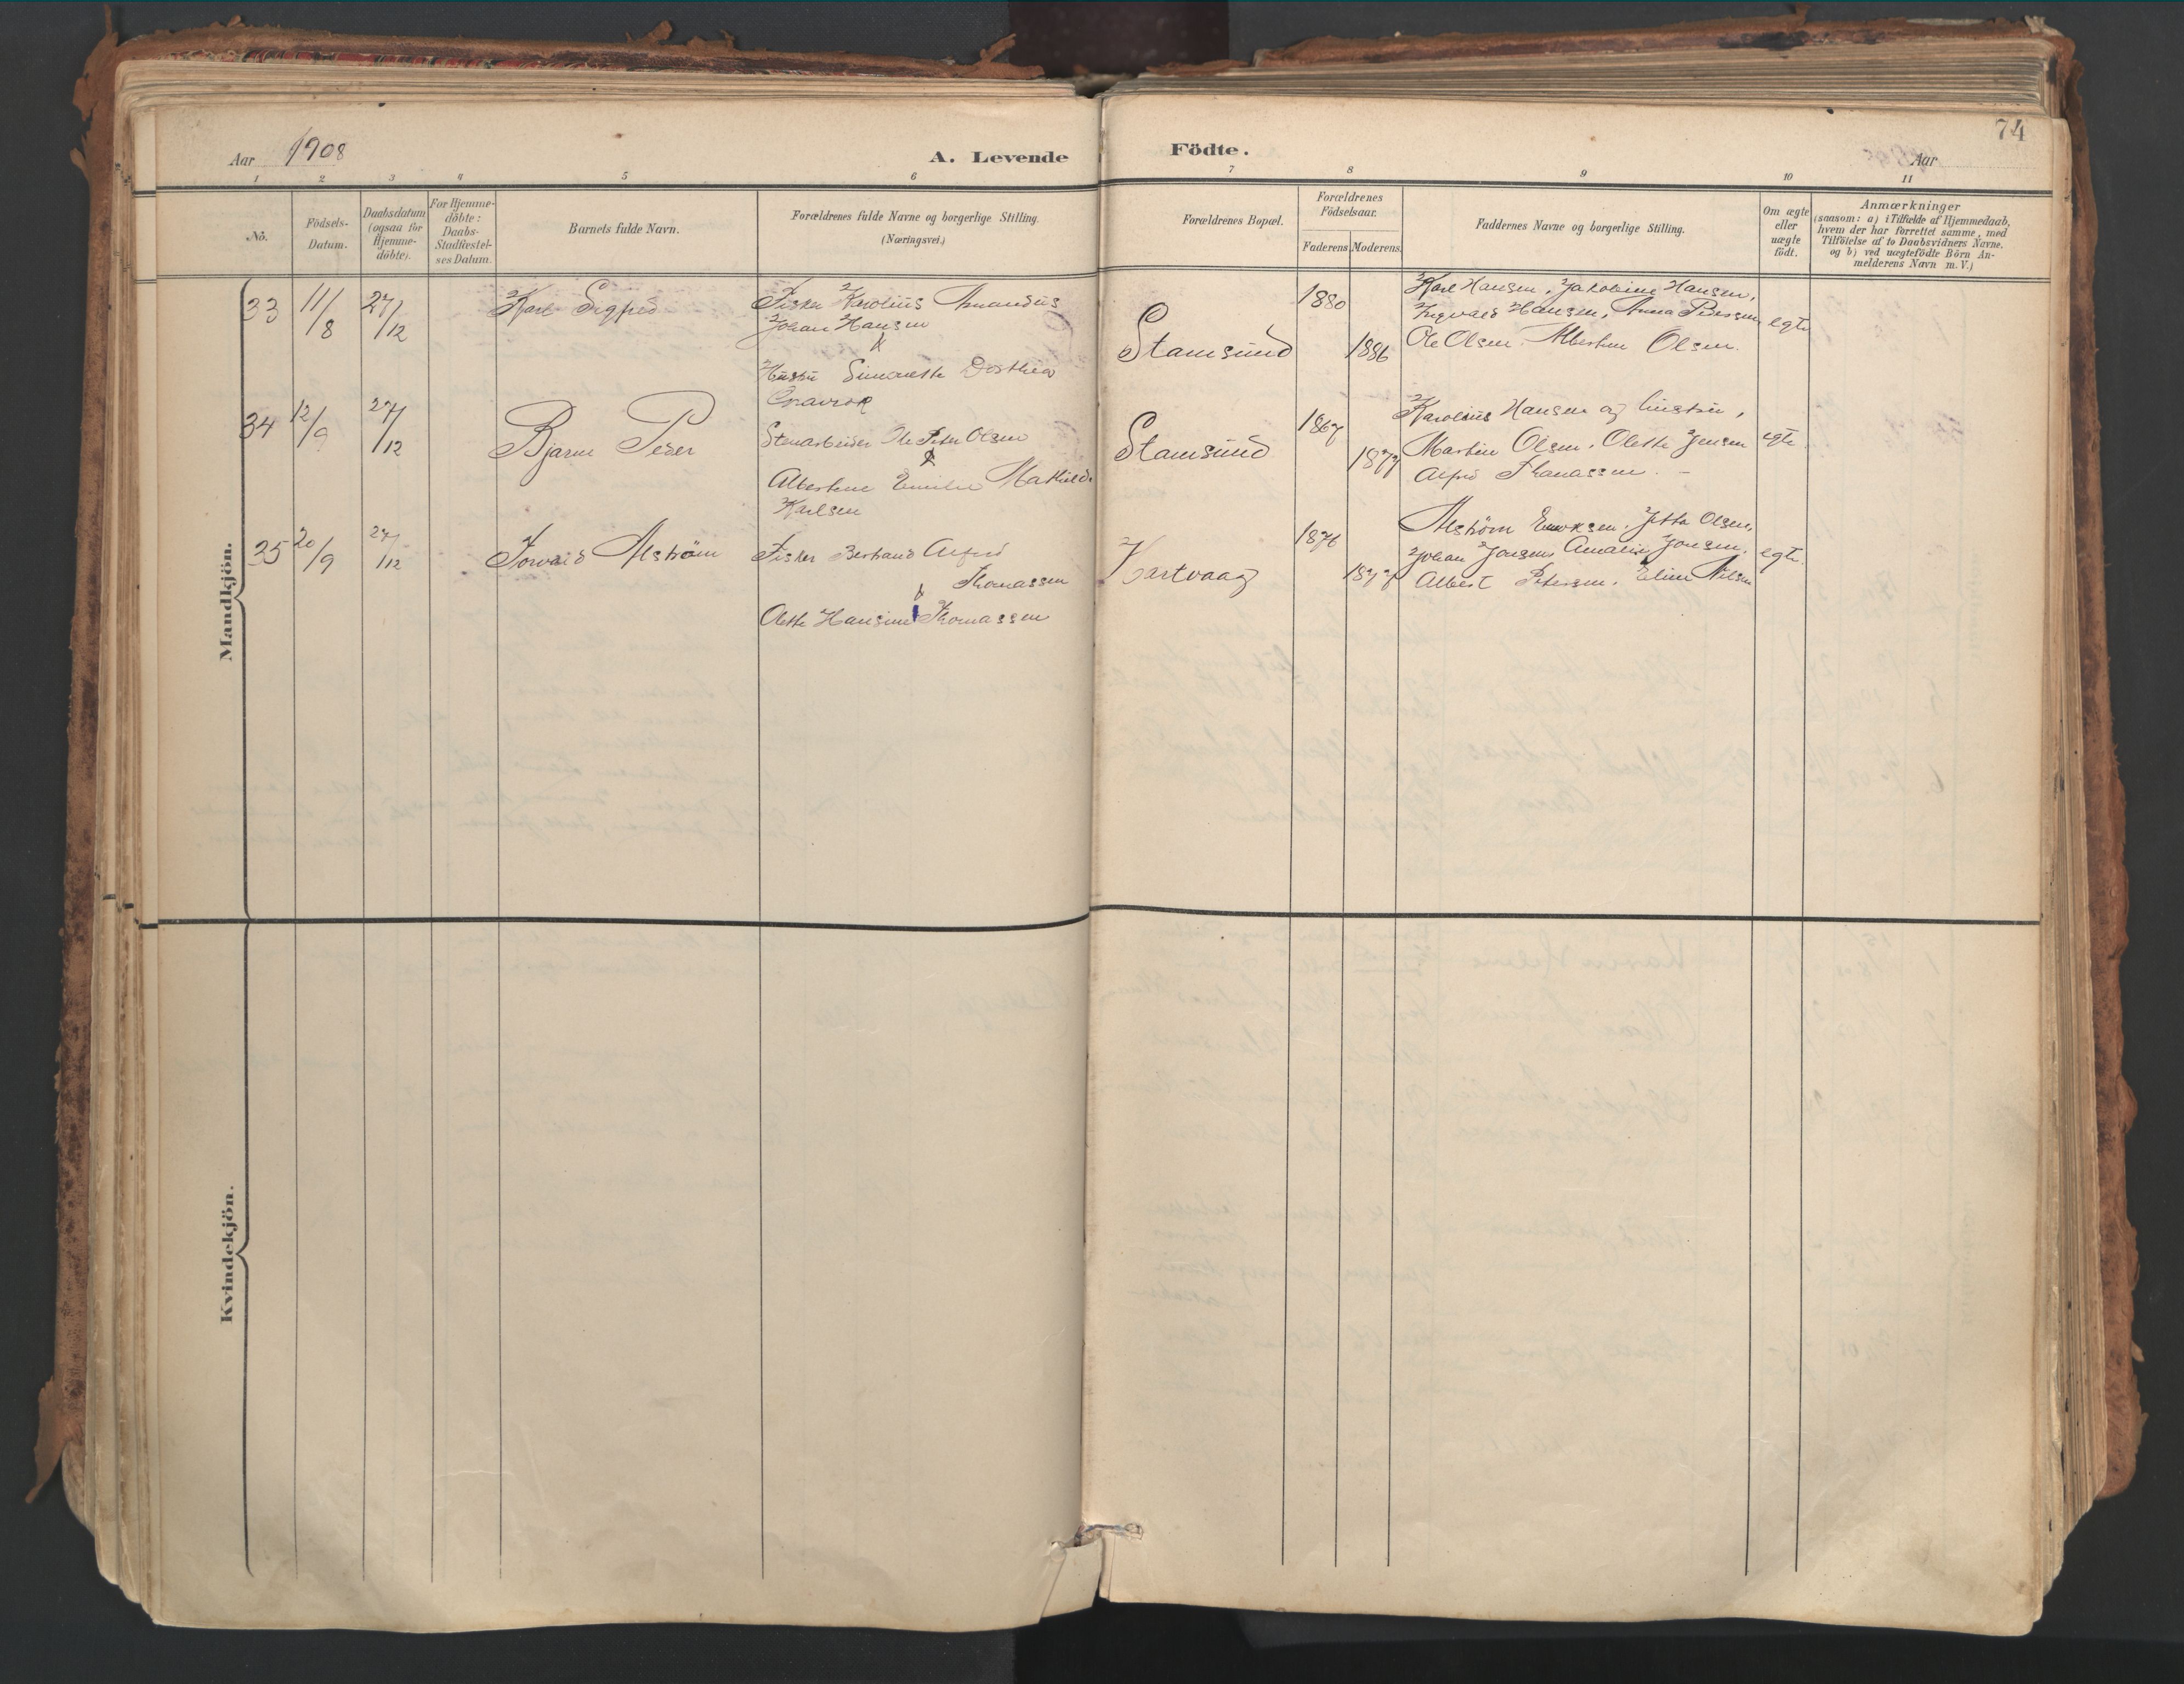 74
Aar 1908
A. Levende
Födte.
Aar
1 2 3 4 5 6 7 8 9 10 11
No.
Födsels-
Datum.
Daabsdatum
(ogsaa for
Hjemme-
döbte).
For Hjemme-
döbte:
Daabs-
Stadfæstel-
ses Datum.
Barnets fulde Navn.
Forældrenes fulde Navne og borgerlige Stilling.
(Næringsvei.)
Forældrenes Bopæl.
Forældrenes
Födselsaar.
Faderens Moderens.
Faddernes Navne og borgerlige Stilling.
Om ægte
eller
uægte
födt.
Anmærkninger
(saasom: a) i Tilfælde af Hjemmedaab,
hvem der har forrettet samme, med
Tilföielse af to Daabsvidners Navne.
og b) ved uægtefödte Börn An-
melderens Navn m. V.)
Mandkjön.
33 11/8 27/12 Karl Sigfred
Fisker Karolius Amandus
Johan Hansen
Hustru Simonette Dorthea
Stamsund
1880
1886
Karl Hansen, Jakobine Hansen,
Ingvald Hansen, Anna Pedersen
Ole Olsen. Albertine Olsen.
egte
34 12/9 27/12 Bjarne Peder
Stenarbeider Ole Peter Olsen
&
Albertine Emilie Mathilde
Karlsen
Stamsund
1867
1877
Karolius Hansen og hustru,
Martin Olsen. Olette Jensen
Alfred Thomassen.
egte
35 20/9 27/12 Torvald Alström
Fisker Berthand Alfred
Thomassen
Olette Hansine Thomassen
Kartvaag
1876
1877
Alström Enoksen. Jetta Olsen,
Johan Jensen Amalie Jensen.
Albert Petersen. Eline Nilsen
egte.
Kvindekjön.